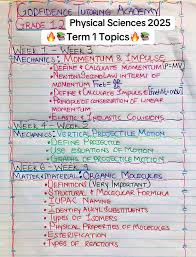 GODFIDENCE TUTORING ACADEMY
GRADE 12 Physical Sciences 2025
🔥📚Term 1 Topics🔥📚
WEEK 1 - WEEK 3
MECHANICS: MOMENTUM & IMPULSE
• DEFINE & CALCULATE MOMENTUM
• NEWTON'S SECOND LAW I.T.O MOMENTUM
• DEFINE & CALCULATE IMPULSE
• PRINCIPLE OF CONSERVATION OF LINEAR MOMENTUM
• ELASTIC & INELASTIC COLLISIONS
MECHANICS: VERTICAL PROJECTILE MOTION
• DEFINE PROJECTILE
• USE EQUATIONS OF MOTION
• GRAPHS OF PROJECTILE MOTION
MATTER & MATERIAL: ORGANIC MOLECULES
• DEFINITIONS (VERY IMPORTANT)
• STRUCTURAL & MOLECULAR FORMULA
• IUPAC NAMING
• IDENTIFY ALKYL SUBSTITUENTS
• TYPES OF ISOMERS
• PHYSICAL PROPERTIES OF MOLECULES
• ESTERIFICATION
• TYPES OF REACTIONS